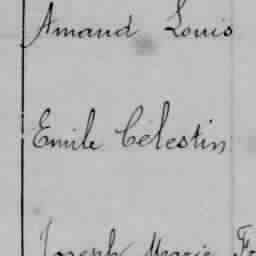 Amand Louis
Emile Célestin
Joseph Marie Fr